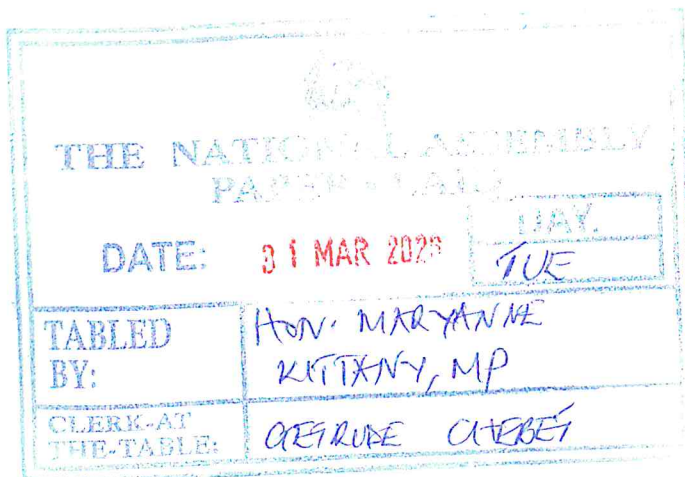 THE NATIONAL ASSEMBLY
PAPERS LAID
DATE: 31 MAR
DAY.
TUE
TABLED BY:
HON. MARYANNE
KITTANY, MP
CLERK-AT
THE-TABLE:
GETRUDE CHEBET